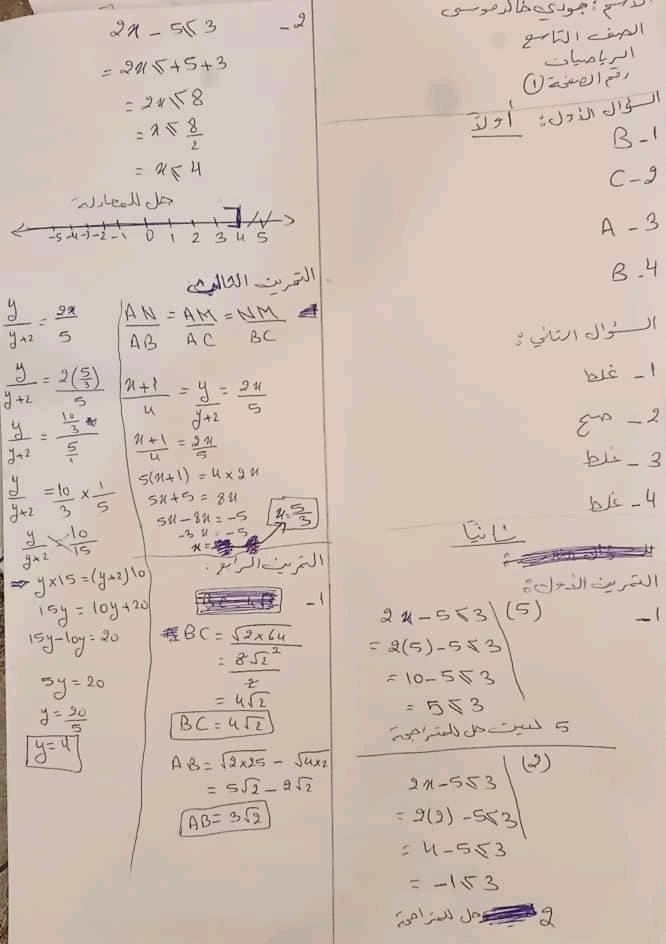 الاسم : جودي خالد موسى
الصف التاسع
الرياضيات
رقم الصفحة (1)
السؤال الأول : أولاً
B - 1
C - 2
A - 3
B - 4
السؤال الثاني :
1 - غلط
2 - صح
3 - غلط
4 - غلط
ثانياً
التمرين الأول :
1 -
2x - 5 ⩽ 3 (5)
= 2(5) - 5 ⩽ 3
= 10 - 5 ⩽ 3
= 5 ⩽ 3
5 ليست حل للمتراجحة
2x - 5 ⩽ 3 (2)
= 2(2) - 5 ⩽ 3
= 4 - 5 ⩽ 3
= -1 ⩽ 3
2 حل للمتراجحة
2 -
2x - 5 ⩽ 3
= 2x ⩽ +5 + 3
= 2x ⩽ 8
= x ⩽ 8/2
= x ⩽ 4
حل للمعادلة
-5 -4 -3 -2 -1 0 1 2 3 4 5
التمرين الثالث
AN/AB = AM/AC = NM/BC
x+1/4 = y/y+2 = 2x/5
x+1/4 = 2x/5
5(x+1) = 4 × 2x
5x + 5 = 8x
5x - 8x = -5
-3x = -5
x =
x = 5/3
y/y+2 = 2x/5
y/y+2 = 2(5/3)/5
y/y+2 = 10/3 / 5/1
y/y+2 = 10/3 × 1/5
y/y+2 = 10/15
⇒ y × 15 = (y+2)10
15y = 10y + 20
15y - 10y = 20
5y = 20
y = 20/5
y = 4
التمرين الرابع :
1 -
BC = √2×64
= 8√2/2
= 4√2
BC = 4√2
AB = √2×25 - √4×2
= 5√2 - 2√2
AB = 3√2